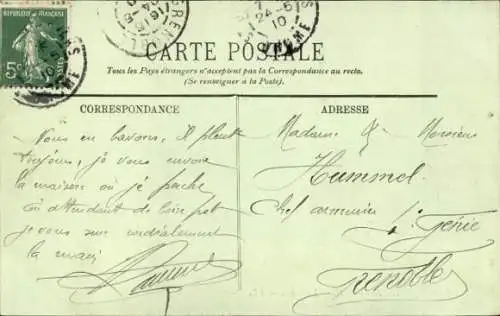 REPUBLIQUE FRANÇAISE
5c
GRENOBLE
24-5
10
DROME
CARTE POSTALE
Tous les Pays étrangers n'acceptent pas la Correspondance au recto.
(Se renseigner à la Poste).
CORRESPONDANCE
ADRESSE
Vous en bavons, Il pleut
toujours, je vous envoie
la maison où je
en attendant de
je vous serre cordialement
la main
Madame & Monsieur
Hummel
Chef armurier
Génie
Grenoble